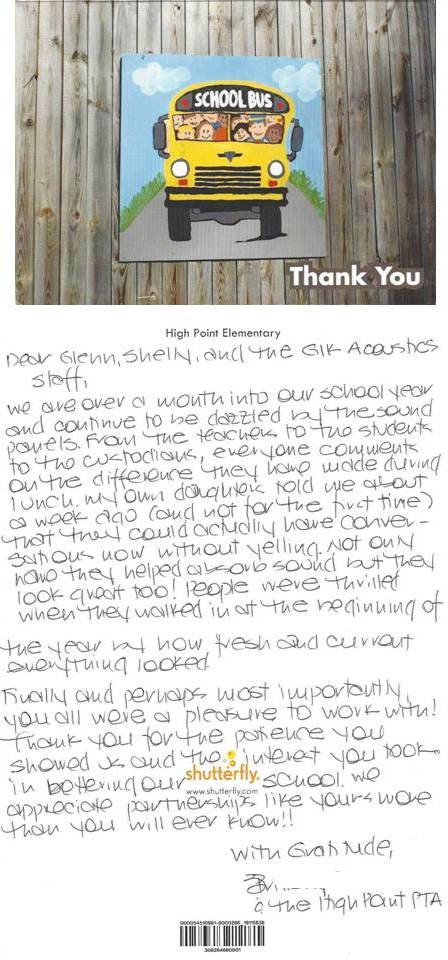 SCHOOL BUS
Thank You
High Point Elementary
Dear Glenn, Shelly, and the Gik Acoustics
Staff,
We are over a month into our school year
and continue to be dazzled by the sound
panels. From the teachers to the students
to the custodians, everyone comments
on the difference they have made during
lunch. My own daughters told me about
a week ago (and not for the first time)
that they could actually have conver-
sations now without yelling. Not only
have they helped absorb sound but they
look great too! People were thrilled
when they walked in at the beginning of
the year by how fresh and current
everything looked.
Finally and perhaps most importantly,
you all were a pleasure to work with!
Thank you for the patience you
showed us and the interest you took
in bettering our school. We
shutterfly.
www.shutterfly.com
appreciate partnerships like yours more
than you will ever know!!
With Gratitude,
& the High Point PTA